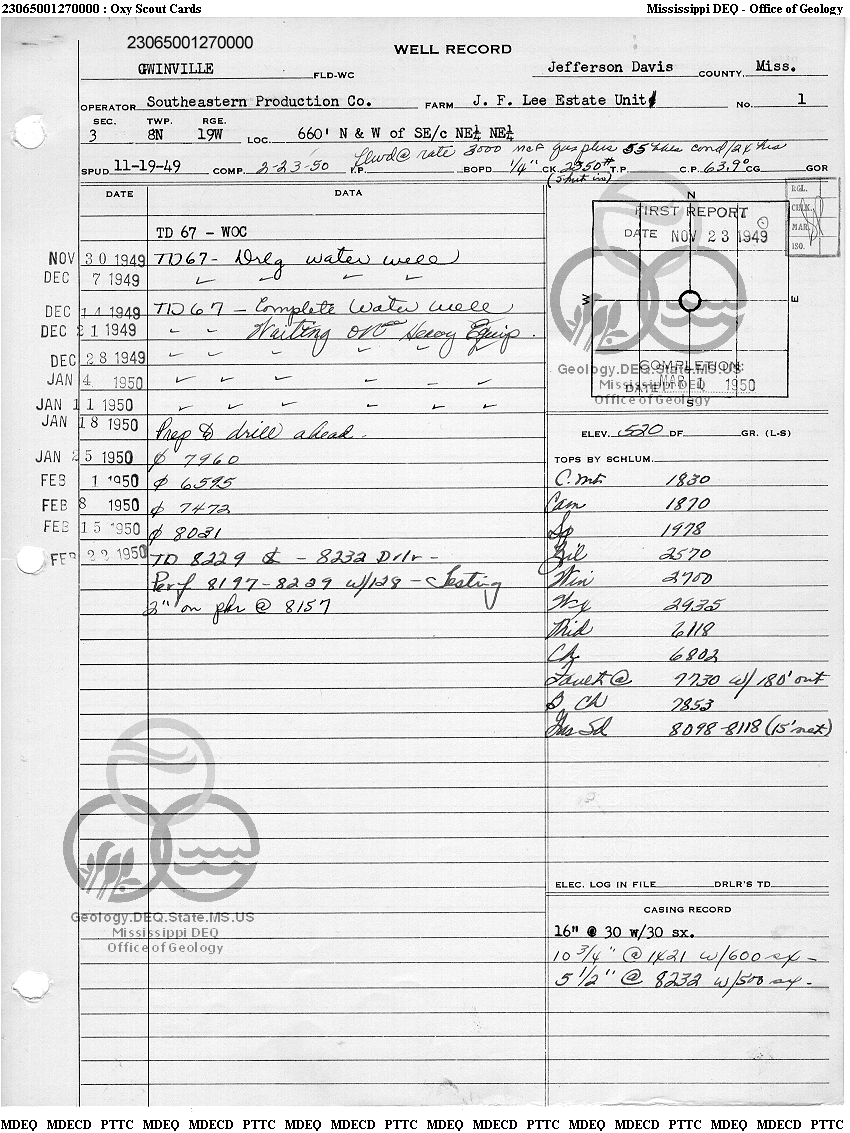 23065001270000 : Oxy Scout Cards Mississippi DEQ - Office of Geology
23065001270000
WELL RECORD
GWINVILLE FLD-WC Jefferson Davis COUNTY, Miss.
OPERATOR Southeastern Production Co. FARM J. F. Lee Estate Unit No. 1
SEC. TWP. RGE.
3 8N 19W LOC. 660' N & W of SE/c NE¼ NE¼
flwd @ rate 3000 mcf gas plus 55 bbls cond/24 hrs
SPUD 11-19-49 COMP. 2-23-50 I.P. BOPD 1/4" CK. 2350# T.P. C.P. 63.9° CG GOR
(5 hut in)
DATE DATA
TD 67 - WOC
NOV 30 1949 TD 67 - Drlg water well
DEC 7 1949 " " " "
DEC 14 1949 TD 67 - Complete Water well
DEC 21 1949 " " Waiting on Heavy Equip.
DEC 28 1949 " " " " "
JAN 4 1950 " " " " "
JAN 11 1950 " " " " "
JAN 18 1950 Prep to drill ahead.
JAN 25 1950 ₵ 7960
FEB 1 1950 ₵ 6595
FEB 8 1950 ₵ 7472
FEB 15 1950 ₵ 8021
FEB 22 1950 TD 8229 - 8232 Drlr -
Perf 8197-8229 w/128 - Testing
2" on pkr @ 8157
RGL.
CHLK.
MAR.
ISO.
N
FIRST REPORT
DATE NOV 23 1949
W E
COMPLETION:
DATE MAR 1 1950
S
Geology.DEQ.State.MS.US
Mississippi DEQ
Office of Geology
ELEV. 520 DF GR. (L-S)
TOPS BY SCHLUM.
C. mtn 1830
Cam 1870
Sp 1978
Gil 2570
Win 2700
Wx 2935
Mid 6118
Ck 6802
Fault @ 7730 w/ 180' out
B Ch 7853
Gas Sd 8098-8118 (15' net)
Geology.DEQ.State.MS.US
Mississippi DEQ
Office of Geology
ELEC. LOG IN FILE DRLR'S TD
CASING RECORD
16" @ 30 w/30 sx.
10 3/4" @ 1421 w/600 sx -
5 1/2" @ 8232 w/500 sx -
MDEQ MDECD PTTC MDEQ MDECD PTTC MDEQ MDECD PTTC MDEQ MDECD PTTC MDEQ MDECD PTTC MDEQ MDECD PTTC